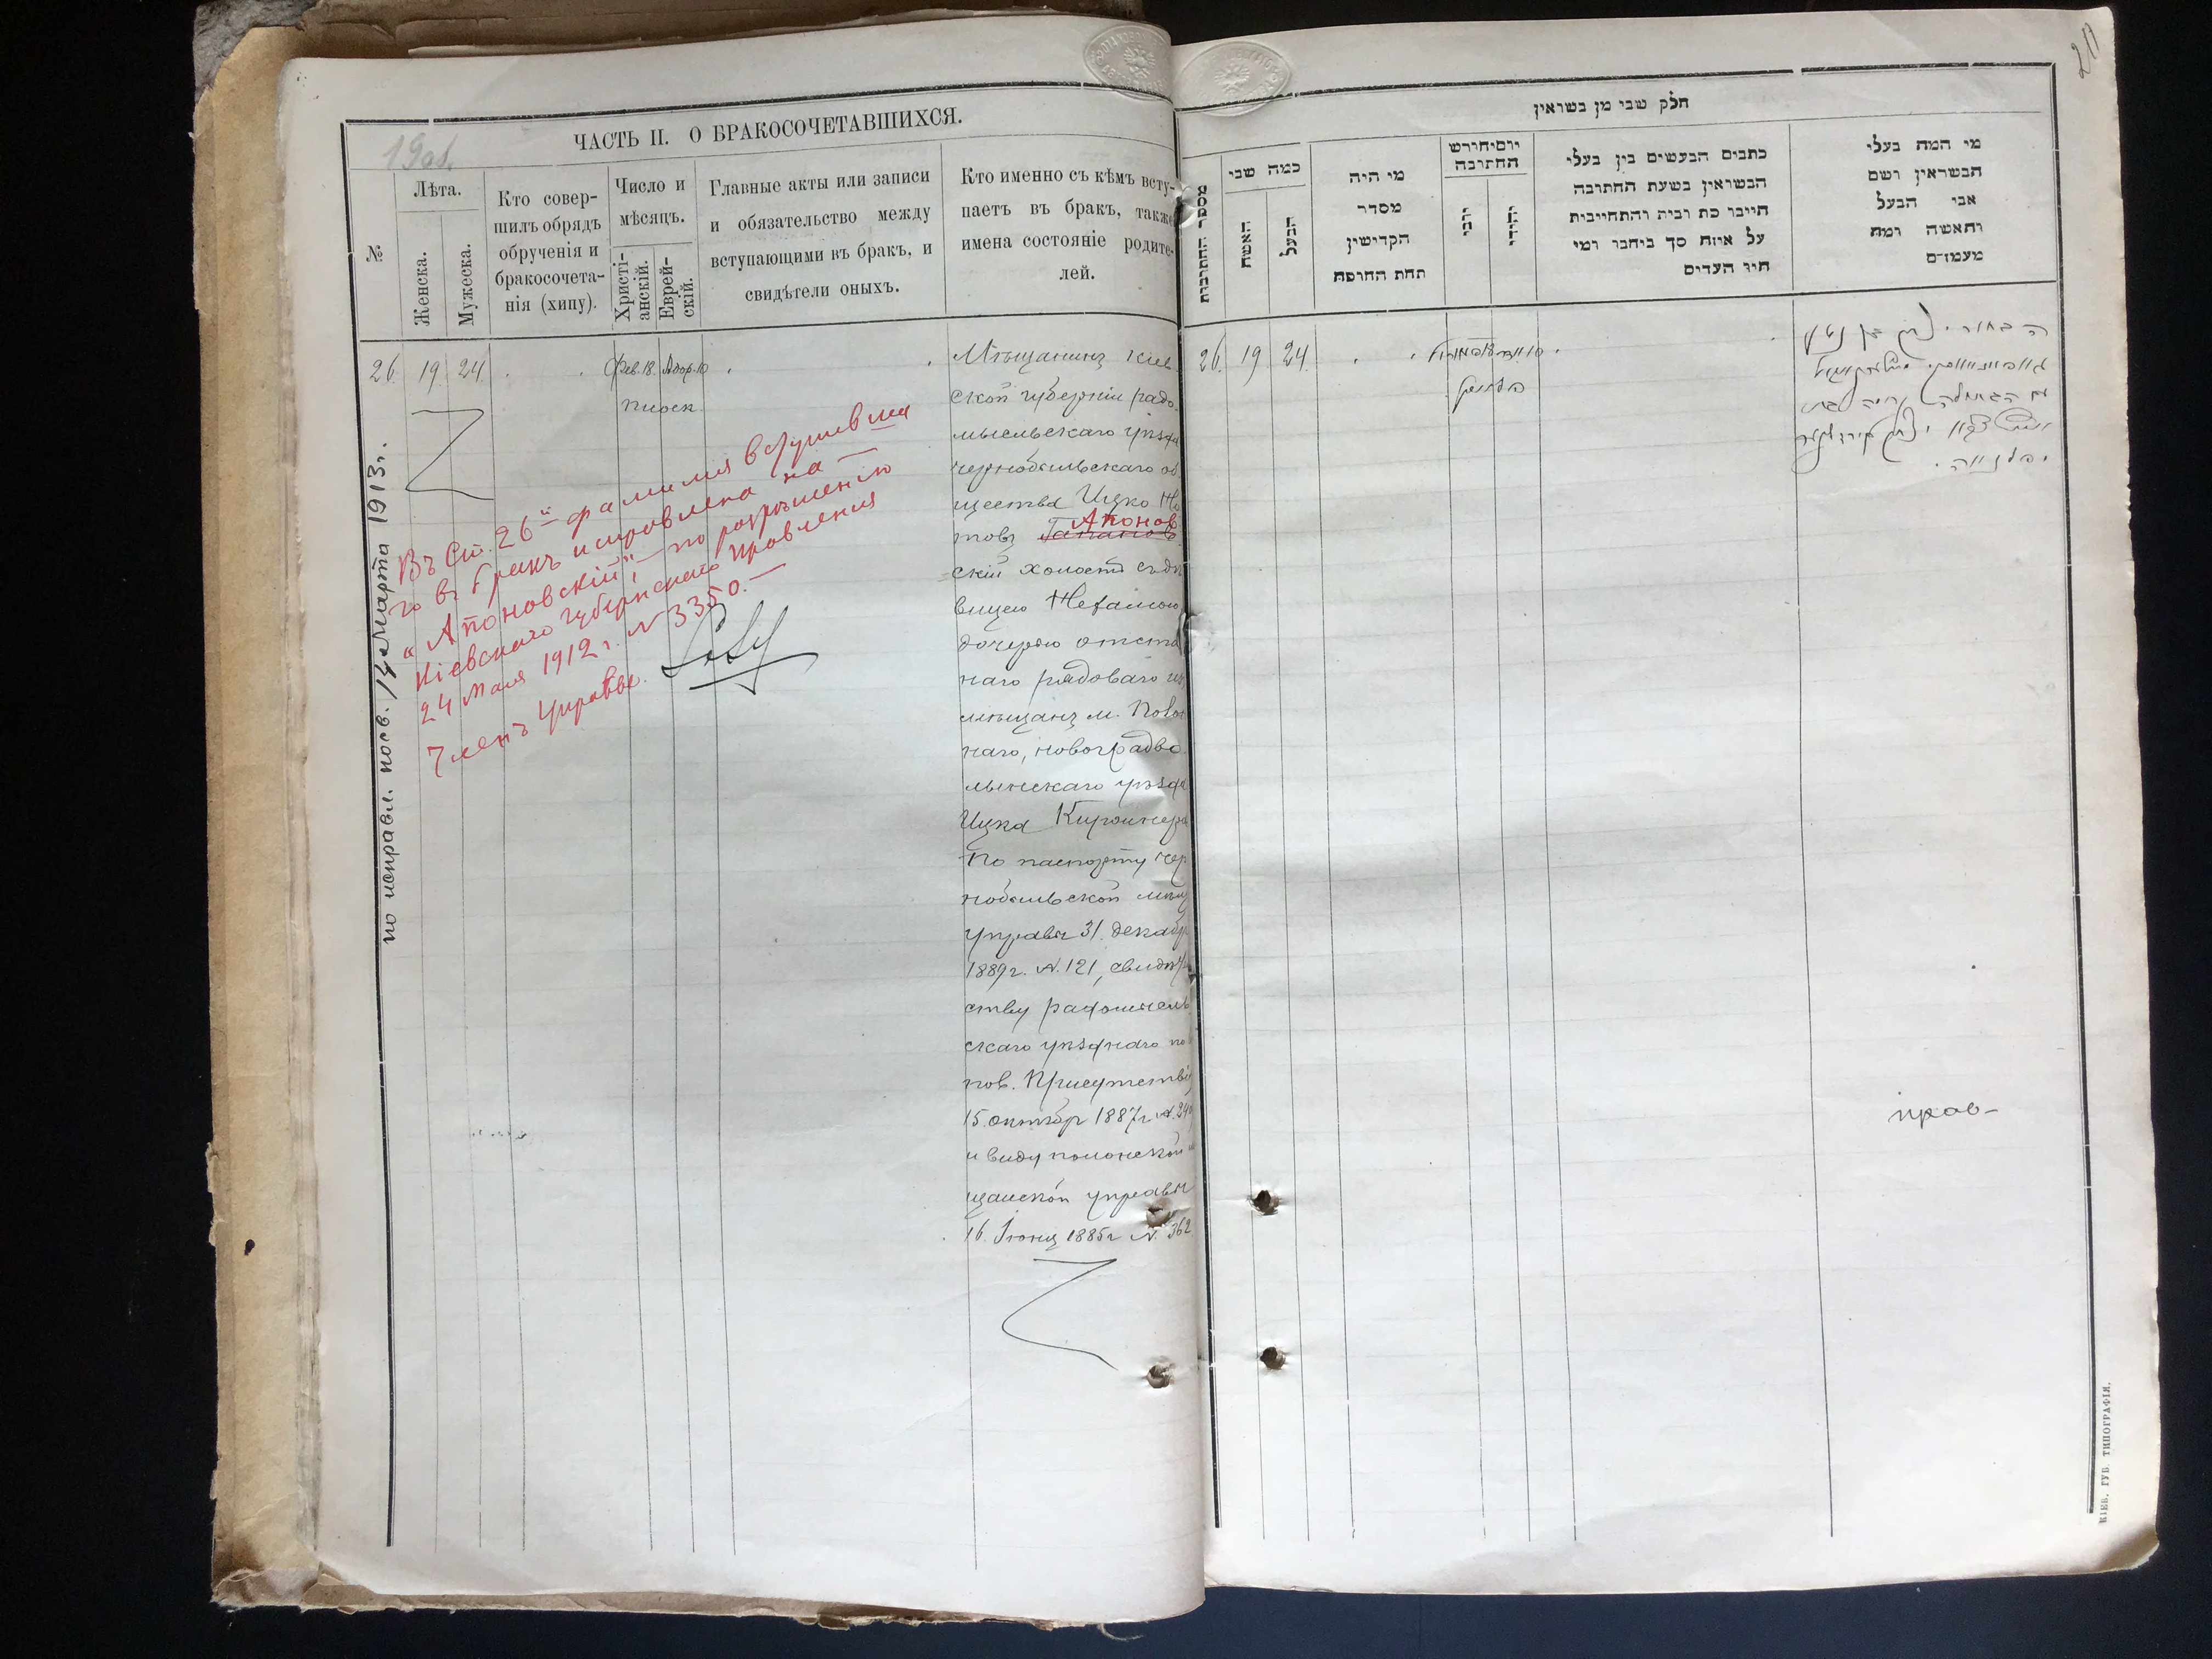 19об.
ЧАСТЬ II. О БРАКОСОЧЕТАВШИХСЯ.
№
Лѣта.
Женска.
Мужеска.
Кто совер-
шилъ обрядъ
обрученія и
бракосочета-
нія (хипу).
Число и
мѣсяцъ.
Христі-
анскій.
Еврей-
скій.
Главные акты или записи
и обязательство между
вступающими въ бракъ, и
свидѣтели оныхъ.
Кто именно съ кѣмъ всту-
паетъ въ бракъ, также
имена состояніе родите-
лей.
26. 19. 24. Фев. 18. Адор. 10
Мѣщанинъ Кіев
ской губерніи радо
мысльскаго уѣзда
чернобыльскаго об
щества Ицко Но
товъ Апонов
скій холостъ съ дѣ
вицею Нехамою
дочерью отста
наго рядоваго изъ
мѣщанъ м. Полон
наго, новоградво
лынскаго уѣзда
Ицка Киржнера
По паспорту чер
нобыльской мѣщ
управы 31. декабр
1889г. №. 121, свидѣт
ству радомысль
скаго уѣзднаго по
пов. Присутствія
15. октобр 1887г №. 240
и виду полонской м
щанской управы
16. Іюня 1885г №. 362
Въ Ст. 26й фамилія вступивша
го въ бракъ исправлена на
"Апоновскій", по разрѣшенію
Кіевскаго Губернскаго Правленія
24 Мая 1912 г. № 3350.—
Членъ Управы
по исправл. пост. 14 Марта 1913 г.
חלק שני מן נשואין
מספר החתונות
כמה שני
האשה
הבעל
מי היה
מסדר
הקדושין
תחת החופה
יום וחודש
החתונה
כתבים הנעשים בין בעלי
הנשואין בשעת החתונה
היינו כתובות והתחייבות
על איזה סך ביחבר ומי
היו העדים
מי המה בעלי
הנשואין ושם
אבי הבעל
והאשה ומה
מעמדם
26. 19 24.
прав-
КІЕВ. ГУБ. ТИПОГРАФІЯ.